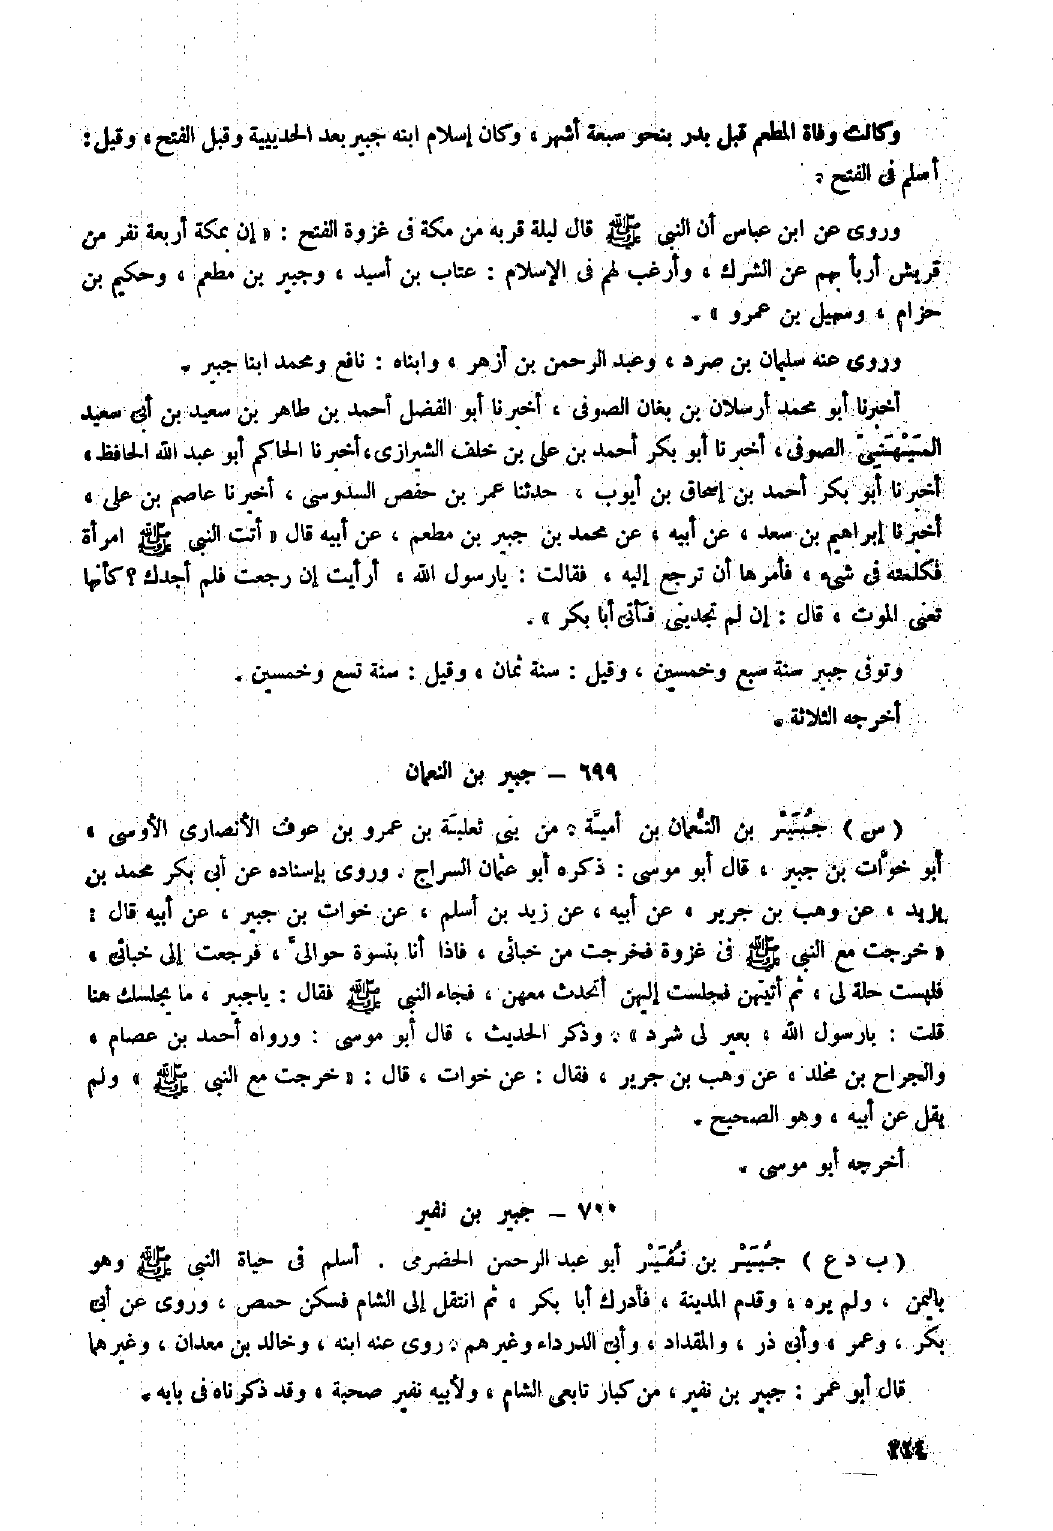 وكانت وفاة المطعم قبل بدر بنحو سبعة أشهر ، وكان إسلام ابنه جبير بعد الحديبية وقبل الفتح ، وقيل :
أسلم فى الفتح .
وروى عن ابن عباس أن النبى ﷺ قال ليلة قربه من مكة فى غزوة الفتح : « إن بمكة أربعة نفر من
قريش أربأ بهم عن الشرك ، وأرغب لهم فى الإسلام : عتاب بن أسيد ، وجبير بن مطعم ، وحكيم بن
حزام ، وسهيل بن عمرو » .
وروى عنه سليمان بن صرد ، وعبد الرحمن بن أزهر ، وابناه : نافع ومحمد ابنا جبير .
أخبرنا أبو محمد أرسلان بن بغان الصوفى ، أخبرنا أبو الفضل أحمد بن طاهر بن سعيد بن أبى سعيد
المَيْهَنِىّ الصوفى ، أخبرنا أبو بكر أحمد بن على بن خلف الشيرازى ، أخبرنا الحاكم أبو عبد الله الحافظ ،
أخبرنا أبو بكر أحمد بن إسحاق بن أيوب ، حدثنا عمر بن حفص السدوسى ، أخبرنا عاصم بن على ،
أخبرنا إبراهيم بن سعد ، عن أبيه ، عن محمد بن جبير بن مطعم ، عن أبيه قال « أتت النبى ﷺ امرأة
فكلمته فى شىء ، فأمرها أن ترجع إليه ، فقالت : يارسول الله ، أرأيت إن رجعت فلم أجدك ؟ كأنها
تعنى الموت ، قال : إن لم تجدينى فأتى أبا بكر » .
وتوفى جبير سنة سبع وخمسين ، وقيل : سنة ثمان ، وقيل : سنة تسع وخمسين .
أخرجه الثلاثة .
٦٩٩ – جبير بن النعمان
( س ) جُبَيْر بن النُّعمان بن أميَّة . من بنى ثعلبَة بن عمرو بن عوف الأنصارى الأوسى ،
أبو خوَّات بن جبير ، قال أبو موسى : ذكره أبو عثمان السراج . وروى بإسناده عن أبى بكر محمد بن
يزيد ، عن وهب بن جرير ، عن أبيه ، عن زيد بن أسلم ، عن خوات بن جبير ، عن أبيه قال :
« خرجت مع النبى ﷺ فى غزوة فخرجت من خبائى ، فاذا أنا بنسوة حوالى ، فرجعت إلى خبائى ،
فلبست حلة لى ، ثم أتيتهن فجلست إليهن أتحدث معهن ، فجاء النبى ﷺ فقال : ياجبير ، ما يجلسك هنا
قلت : يارسول الله ، بعير لى شرد » . وذكر الحديث ، قال أبو موسى : ورواه أحمد بن عصام ،
والجراح بن مخلد ، عن وهب بن جرير ، فقال : عن خوات ، قال : « خرجت مع النبى ﷺ » ولم
يقل عن أبيه ، وهو الصحيح .
أخرجه أبو موسى .
٧٠٠ – جبير بن نفير
( ب د ع ) جُبَيْر بن نُفَيْر أبو عبد الرحمن الحضرمى . أسلم فى حياة النبى ﷺ وهو
باليمن ، ولم يره ، وقدم المدينة ، فأدرك أبا بكر ، ثم انتقل إلى الشام فسكن حمص ، وروى عن أبى
بكر ، وعمر ، وأبى ذر ، والمقداد ، وأبى الدرداء وغيرهم . روى عنه ابنه ، وخالد بن معدان ، وغيرهما
قال أبو عمر : جبير بن نفير ، من كبار تابعى الشام ، ولأبيه نفير صحبة ، وقد ذكرناه فى بابه .
٣٢٤